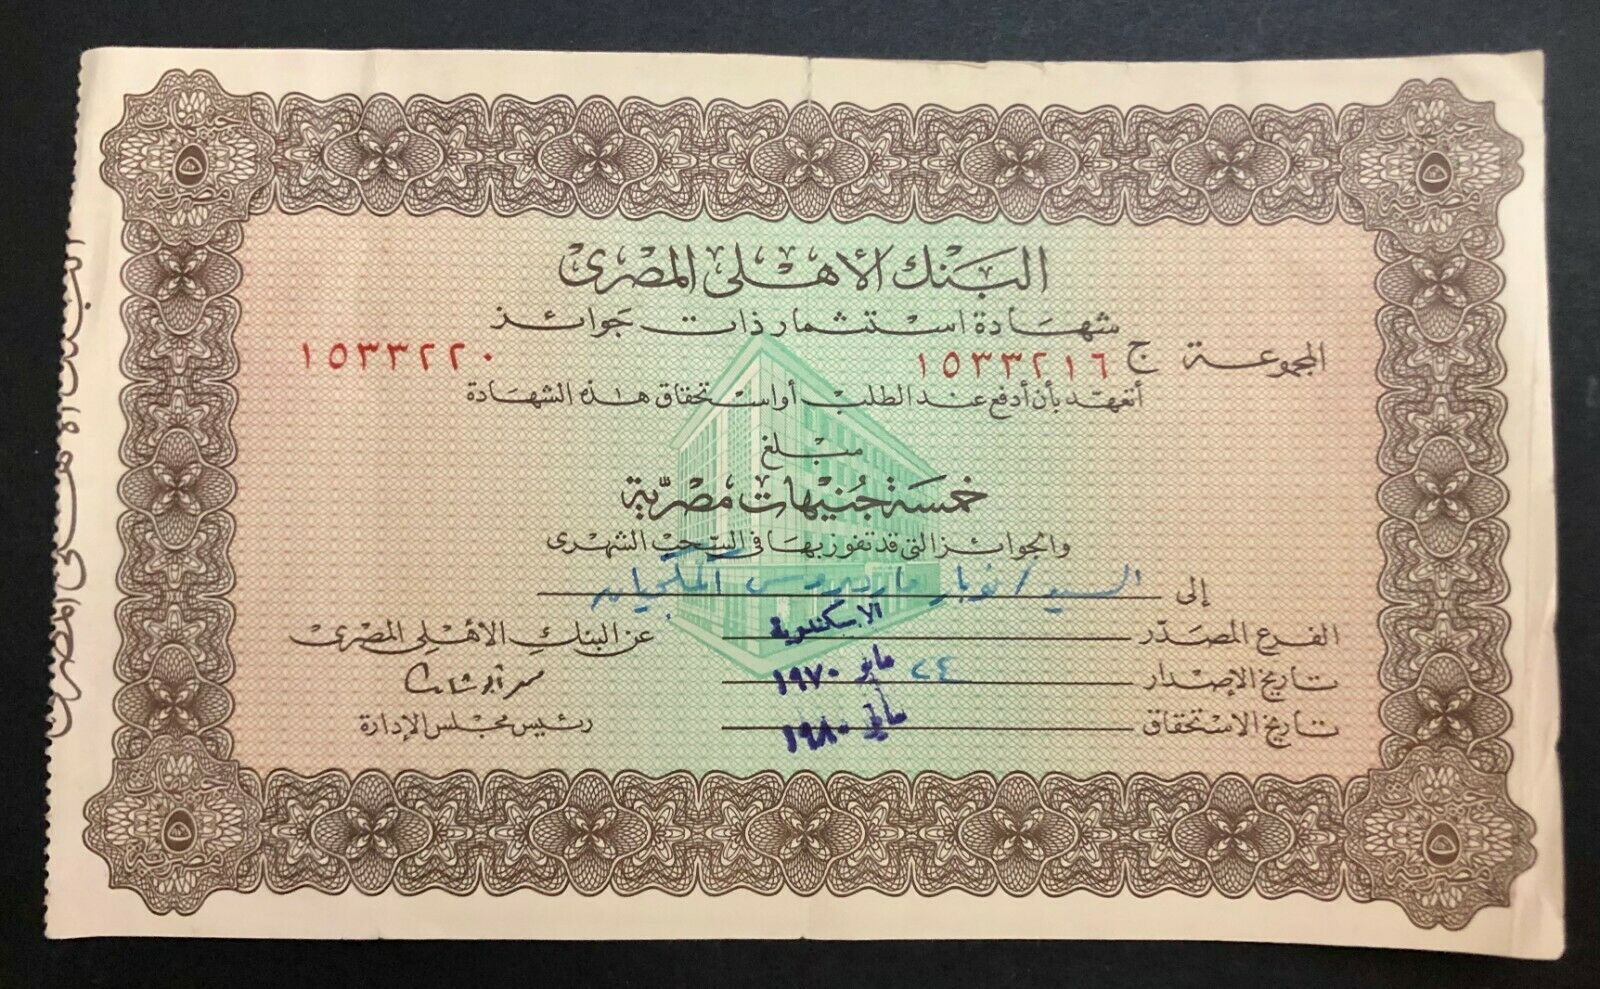 البنك الأهلى المصرى
شهادة استثمار ذات جوائز
المجموعة ج ١٥٣٣٢١٦ ١٥٣٣٢٢٠
أتعهد بأن أدفع عند الطلب أو استحقاق هذه الشهادة
مبلغ
خمسة جنيهات مصرية
والجوائز التى قد تفوز بها فى السحب الشهرى
إلى السيد / نوبار مارديروس
الفرع المصدر الاسكندرية
عن البنك الأهلى المصرى
تاريخ الإصدار ٢٤ مايو ١٩٧٠
تاريخ الاستحقاق مايو ١٩٨٠
رئيس مجلس الإدارة
جنيهات ٥ مصرية
جنيهات ٥ مصرية
جنيهات ٥ مصرية
جنيهات ٥ مصرية
البنك الأهلى المصرى